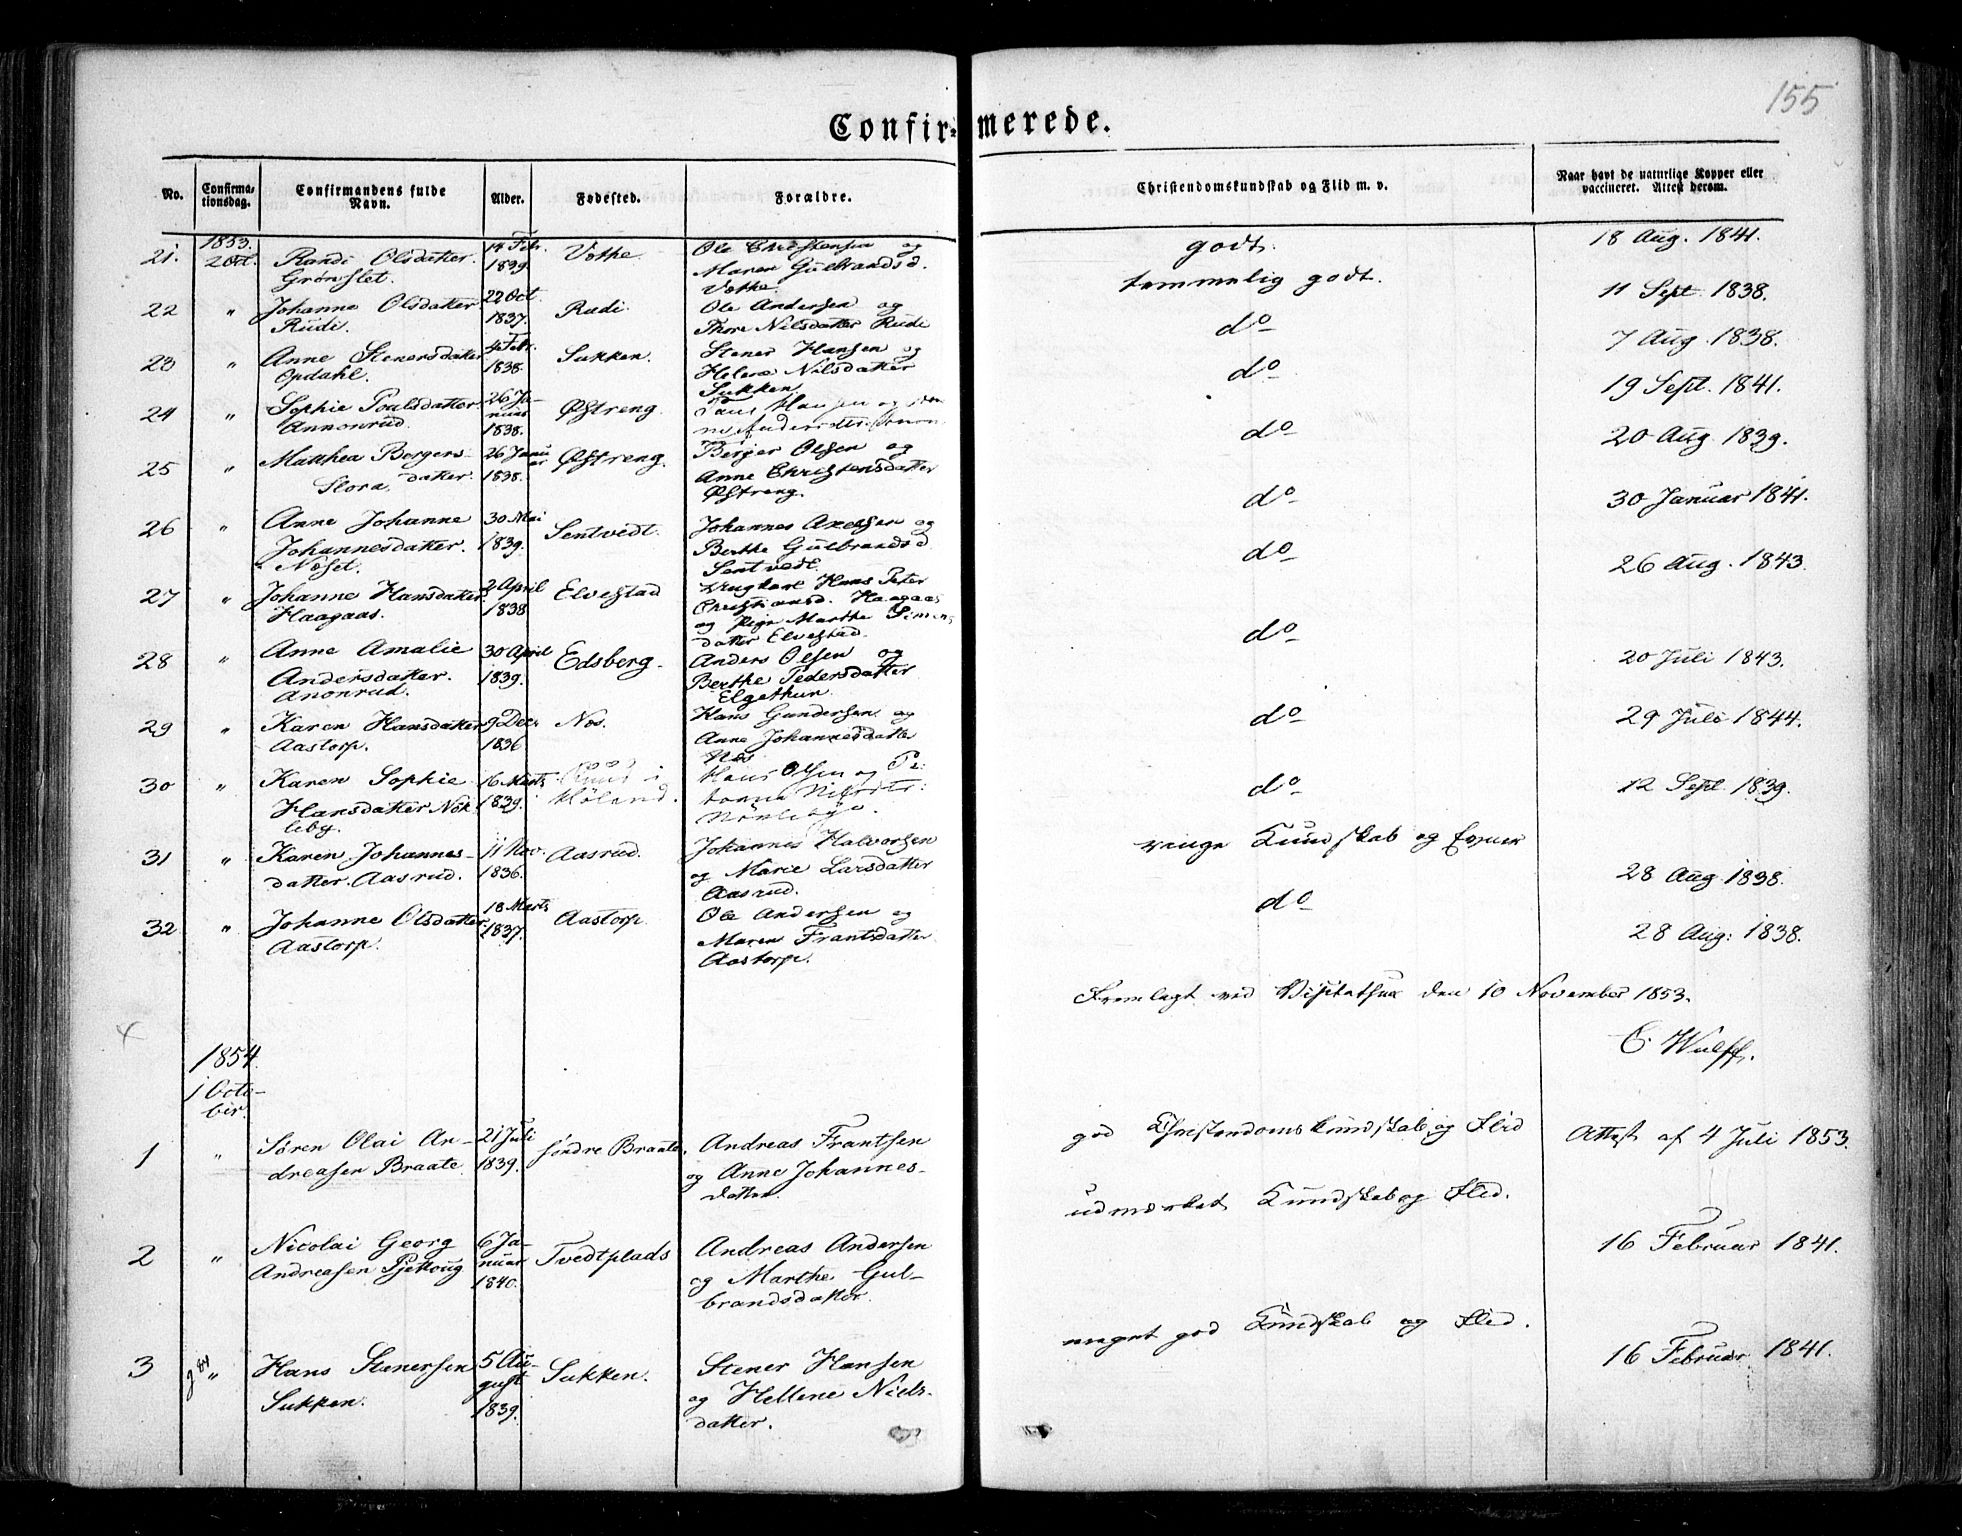 155
Confirmerede.
No. Confirmationsdag. Confirmandens fulde Navn. Alder. Fødested. Forældre. Christendomskundskab og Flid m. v. Naar havt de naturlige Kopper eller vaccineret. Attest derom.
1853.
21. 2 Oct. Randi Olsdatter Grønslet. 14 Febr. 1839. Vothe. Ole Christensen og Maren Gulbrandsd. Vothe. godt. 18 Aug. 1841.
temmelig godt.
22 " Johanne Olsdatter Rudi. 22 Oct. 1837. Rudi. Ole Andersen og Thore Nilsdatter Rudi do 11 Sept. 1838.
23 " Anne Stenersdatter Opdahl. 4 Febr. 1838. Sukken. Stener Hansen og Helene Nilsdatter Sukken do 7 Aug. 1838.
24 " Sophie Poulsdatter Annonrud. 26 Januar 1838. Østreng. Hansen og 19 Sept. 1841.
25 " Mathea Bergersdatter Slora. 26 Januar 1838. Østreng. Berger Olsen og Anne Christensdatter Østreng. do 20 Aug. 1839.
26 " Anne Johanne Johannesdatter. Noset. 30 Mai 1839. Sentvedt. Johannes Axelsen og Berthe Gulbrandsd. Sentvedt. do 30 Januar 1841.
27 " Johanne Hansdatter Haagaas. 2 April 1838 Elvestad Ungkarl Hans Peter Christiansd. Haagaas og Pige Marthe Simensdatter Elvestad. do 26 Aug. 1843.
28 " Anne Amalie Andersdatter. Anonrud. 30 April 1839. Edsberg. Anders Olsen og Berthe Pedersdatter Elgethun. do 20 Juli 1843.
29 " Karen Hansdatter Aastorp. 9 Decr. 1836 Nos. Hans Gundersen og Anne Johannesdatter Nos do 29 Juli 1844.
30 " Karen Sophie Hansdatter Nokleby. 16 Marts 1839. i Høland. Hans Olsen og do 12 Sept. 1839.
31 " Karen Johannesdatter. Aasrud. 11 Nov. 1836. Aasrud. Johannes Halvorsen og Marie Larsdatter Aasrud. ringe Kundskab og Evner 28 Aug. 1838.
32 " Johanne Olsdatter Aastorp. 18 Marts 1837. Aastorp. Ole Andersen og Maren Frantsdatter Aastorp. do 28 Aug: 1838.
Fremlagt ved Visitatsen den 10 November 1853.
C. Wulff.
1854.
1 October.
1 " Søren Olai Andreasen Braate. 21 Juli 1839. søndre Braate. Andreas Frantsen og Anne Johannesdatter. god Christendomskundskab og Flid Attest af 4 Juli 1853.
2 " Nicolai Georg Andreasen Pjekoug 6 Januar 1840. Tvedtplads Andreas Andersen og Marthe Gulbrandsdatter. udmærket Kundskab og Flid. 16 Februar 1841.
3 " Hans Stenersen Sukken. 5 August 1839. Sukken. Stener Hansen og Hellene Nielsdatter. meget god Kundskab og Flid. 16 Februar 1841.